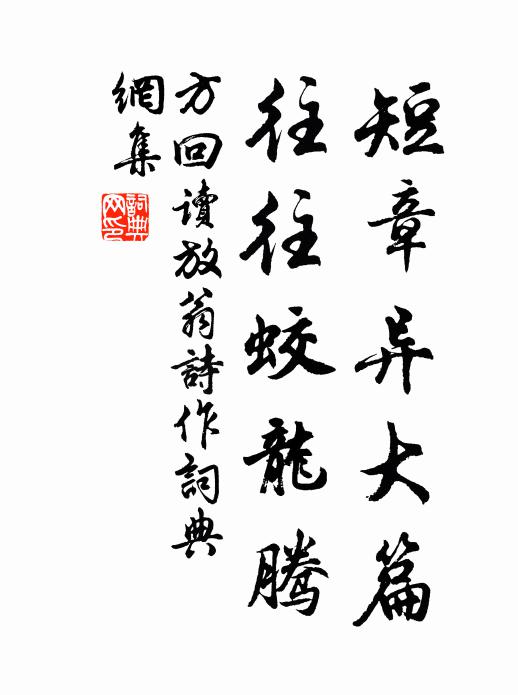 短章异大篇
往往蛟龍腾
方回讀放翁詩作詞典
網集
詞典
网印